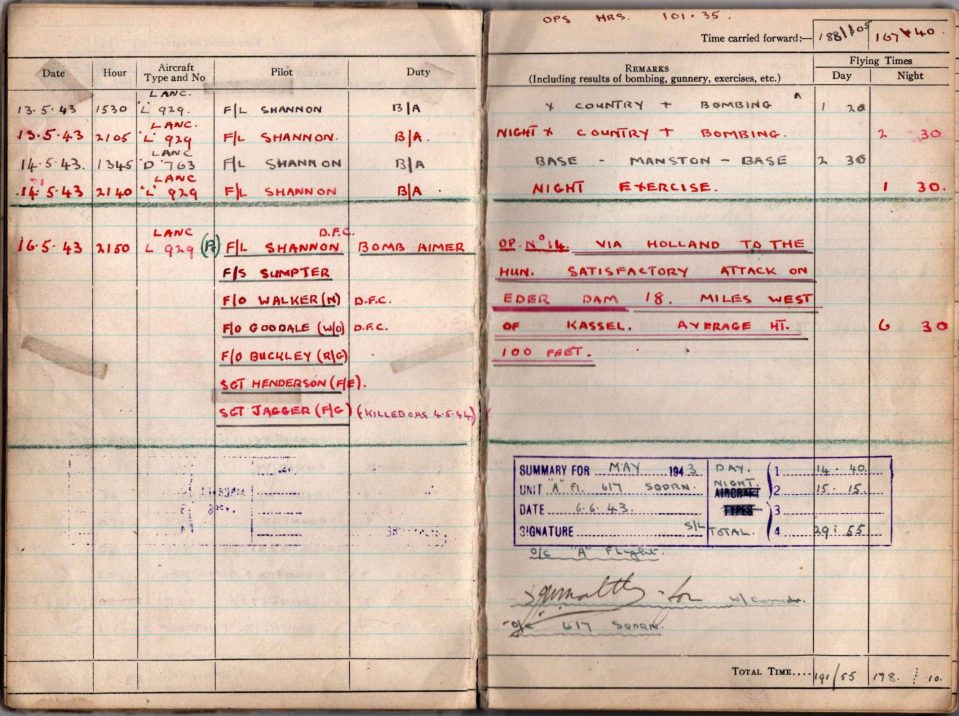 OPS HRS. 101.35.
Time carried forward:— 188/05 167 40.
Date Hour Aircraft Type and No Pilot Duty
REMARKS
(Including results of bombing, gunnery, exercises, etc.)
Flying Times
Day Night
LANC.
13.5.43 1530 'L' 929. F/L SHANNON B/A X COUNTRY + BOMBING 1 20
LANC.
13.5.43 2105 'L' 929 F/L SHANNON. B/A. NIGHT X COUNTRY + BOMBING. 2 30
LANC
14.5.43. 1345 'D' 763 F/L SHANNON B/A BASE - MANSTON - BASE 2 30
LANC
14.5.43 2140 'L' 929 F/L SHANNON B/A NIGHT EXERCISE. 1 30.
LANC D.F.C.
16.5.43 2150 L 929 (P) F/L SHANNON BOMB AIMER OP. No 14. VIA HOLLAND TO THE
F/S SUMPTER HUN. SATISFACTORY ATTACK ON
F/O WALKER (N) D.F.C. EDER DAM 18. MILES WEST
F/O GOODALE (W/O) D.F.C. OF KASSEL. AVERAGE HT. 6 30
F/O BUCKLEY (R/G) 100 FEET.
SGT HENDERSON (F/E).
SGT JAGGER (F/G) (KILLED OPS
SUMMARY FOR MAY 1943 DAY. 1 14.40.
UNIT "A" Fl. 617 SQDRN. NIGHT. AIRCRAFT 2 15.15.
DATE 6.6.43. TYPES 3
SIGNATURE S/L TOTAL. 4 29:55
o/c "A" Flight.
for W/Comdr.
o/c 617 SQDRN.
TOTAL TIME.... 191/55 178. 10.